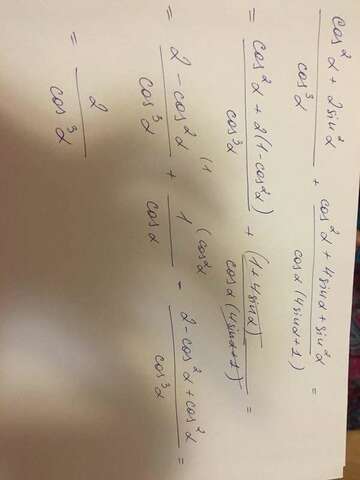 cos²α + 2sin²α / cos³α + cos²α + 4sinα + sin²α / cosα(4sinα+1) =
= cos²α + 2(1-cos²α) / cos³α + (1+4sinα) / cosα(4sinα+1) =
= 2 - cos²α / cos³α (1 + 1 / cosα (cos²α = 2 - cos²α + cos²α / cos³α =
= 2 / cos³α